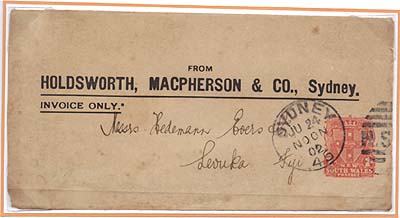 FROM
HOLDSWORTH, MACPHERSON & CO., Sydney.
INVOICE ONLY.
Messrs Hedemann Evers &
Levuka Fiji
SYDNEY
JU 24
NOON
02
45
NEW
SOUTH WALES
POSTAGE